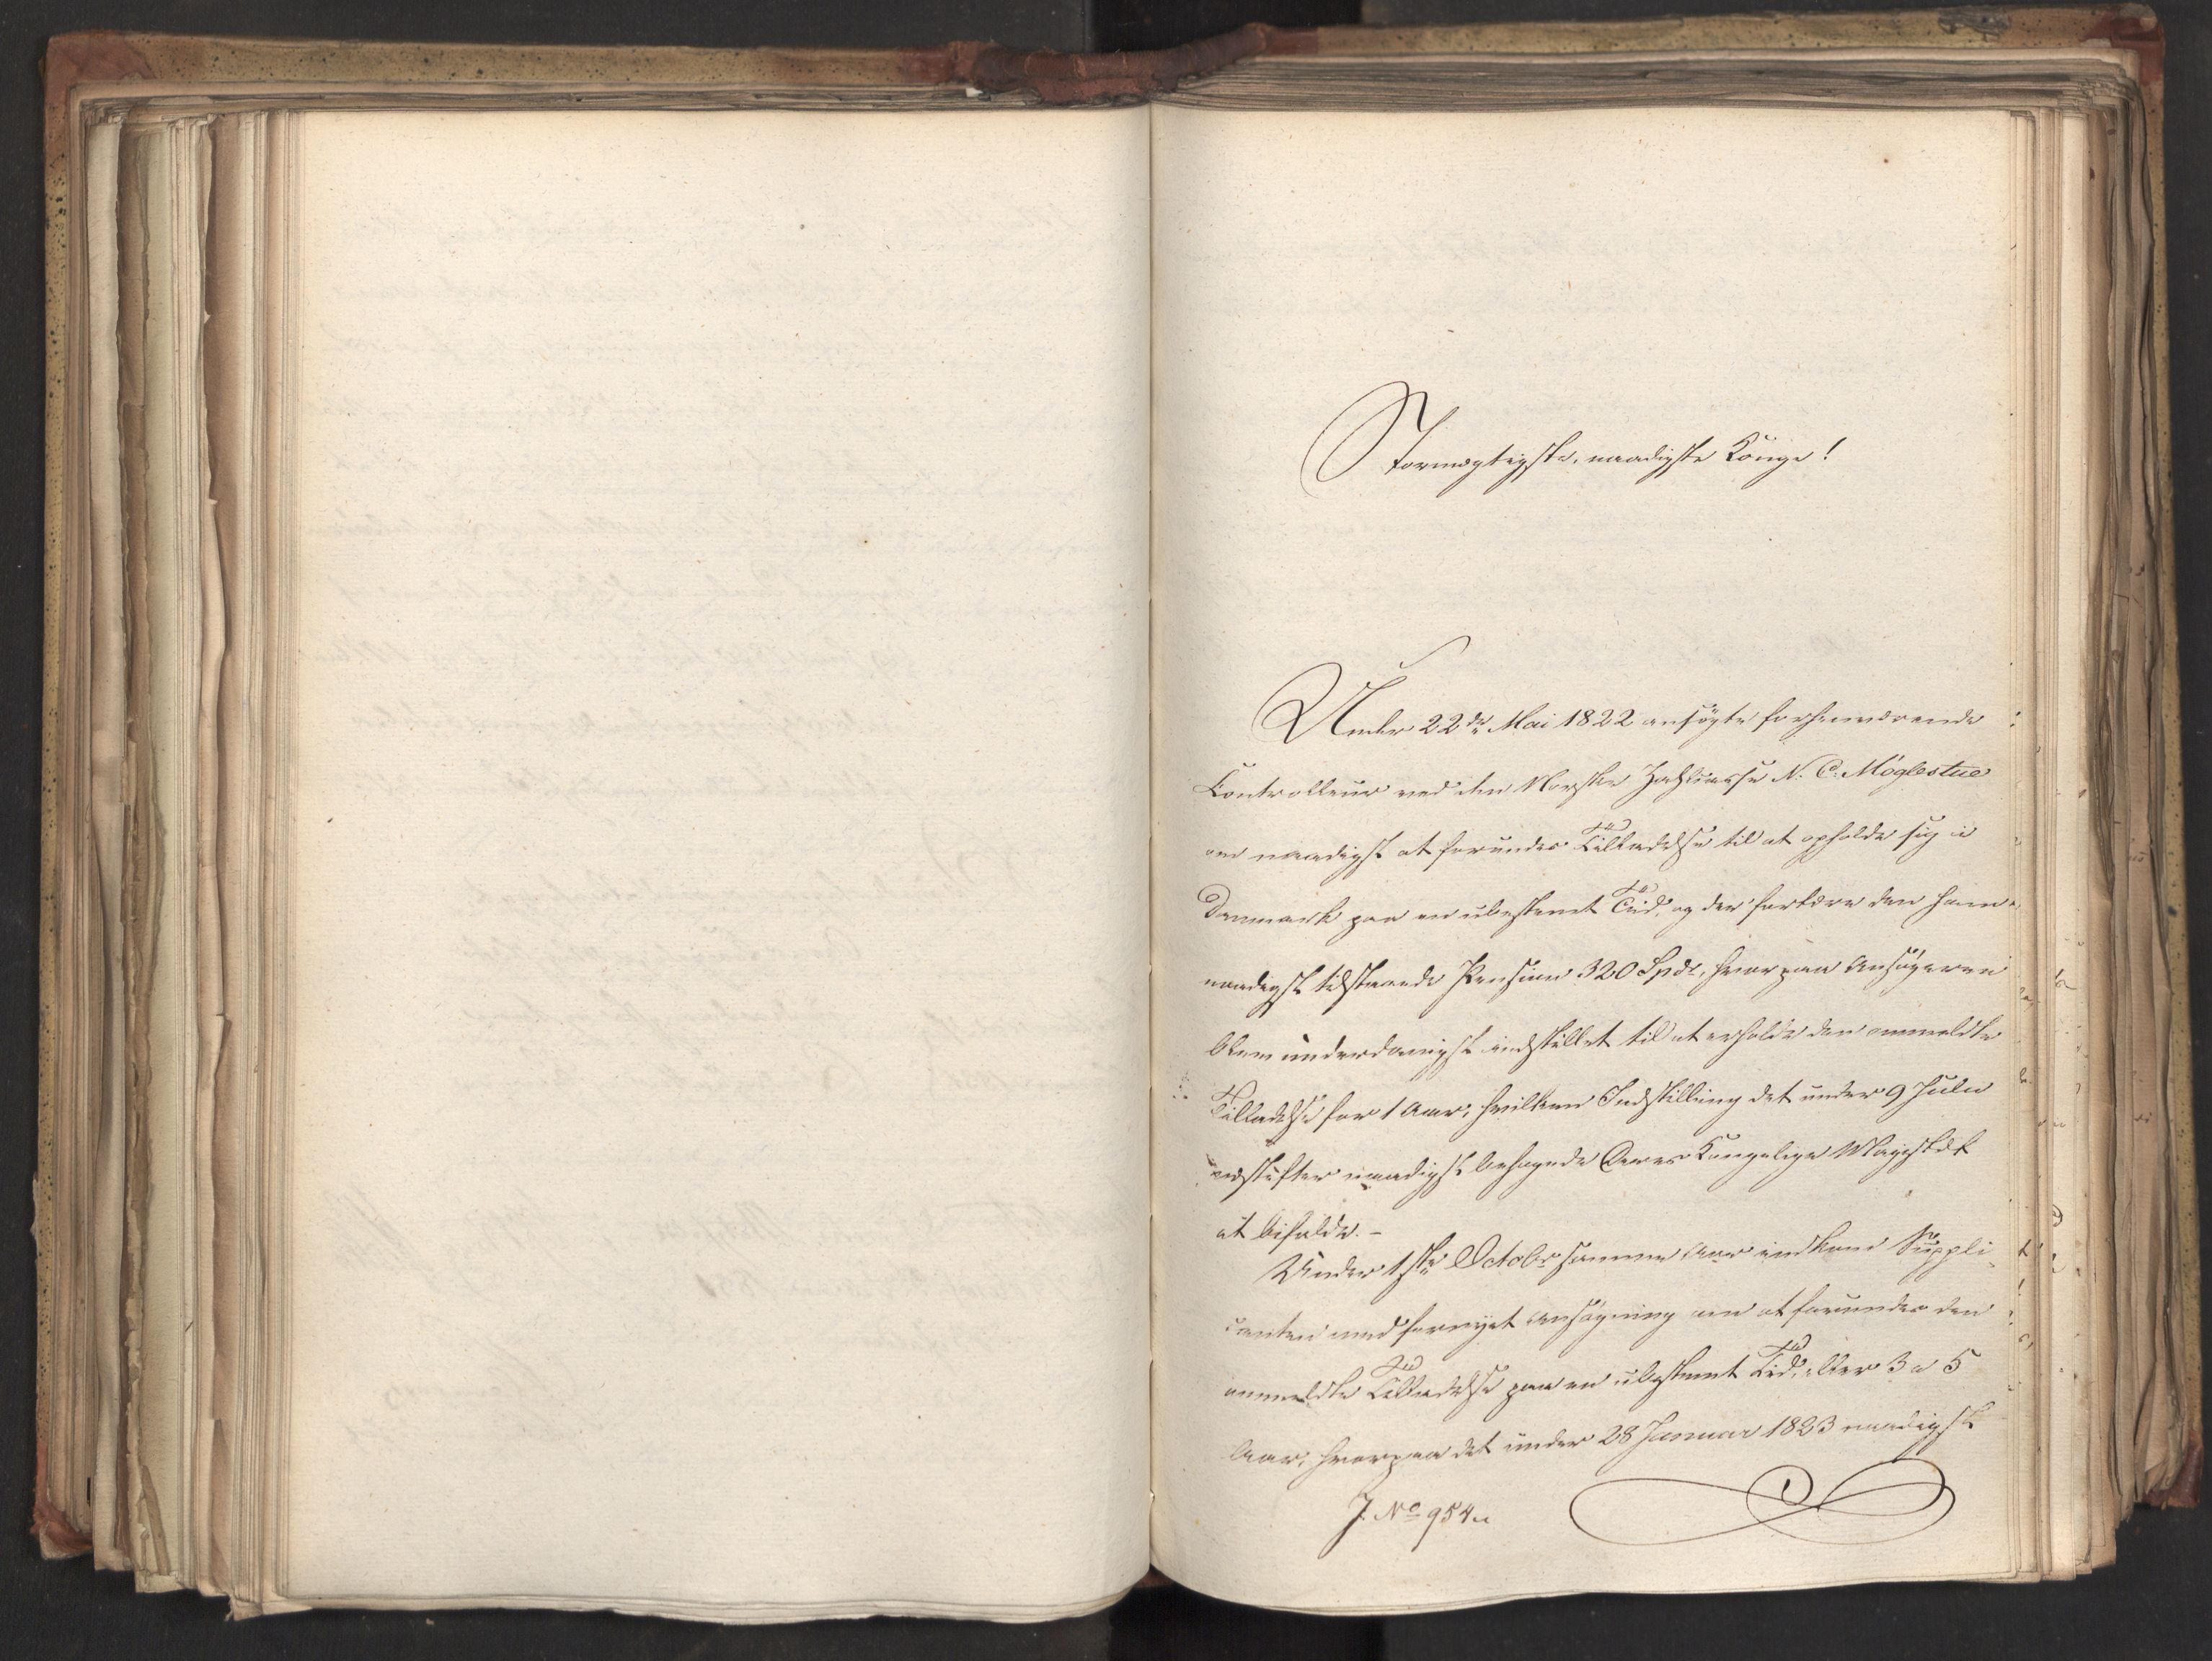 Stormægtigste, naadigste Konge!
Under 22de Mai 1822 ansögte forhenværende
Controlleur ved den Norske N. C. Möglestue
om naadigst at forundes Tilladelse til at opholde sig i
Danmark paa en ubestemt Tid, og der fortære den ham
naadigst tilstaaede Pension 320 Spdr, hvorpaa Ansögeren
blev underdanigst indstillet til at erholde den anmeldte
Tilladelse for 1 Aar, hvilken Indstilling det under 9 Julii
næstefter naadigst behagede Deres Kongelige Majestæt
at bifalde. -
Under 1ste Octobr samme Aar indkom Suppli-
canten med fornyet Ansögning om at forundes den
anmeldte Tilladelse paa en ubestemt Tid, eller 3 a 5
Aar, hvorpaa det under 28 Januar 1823 naadigst
J. No 954